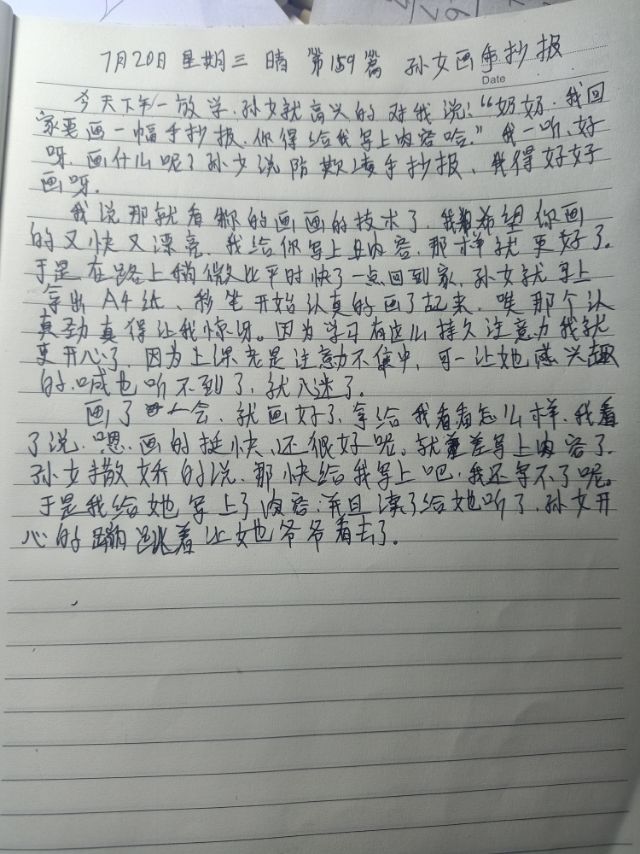 7月20日 星期三 晴 第159篇 孙女画手抄报
Date
今天下午一放学,孙女就高兴的对我说:“奶奶,我回
家要画一幅手抄报,你得给我写上内容哈。”我一听,好
呀,画什么呢?孙女说防欺凌手抄报,我得好好
画呀。
我说那就看你的画画的技术了,我希望你画
的又快又漂亮,我给你写上内容,那样就更好了。
于是在路上稍微比平时快了一点回到家,孙女就马上
拿出A4纸、彩笔开始认真的画了起来,噢那个认
真劲真得让我惊讶。因为学习有这么持久注意力我就
更开心了,因为上课老是注意力不集中,可一让她感兴趣
的,喊也听不到了,就入迷了。
画了一会,就画好了,拿给我看看怎么样,我看
了说,嗯,画的挺快,还很好呢。就差写上内容了,
孙女撒娇的说,那快给我写上吧,我还写不了呢。
于是我给她写上了内容,并且读了给她听了,孙女开
心的蹦跳着让她爷爷看去了。